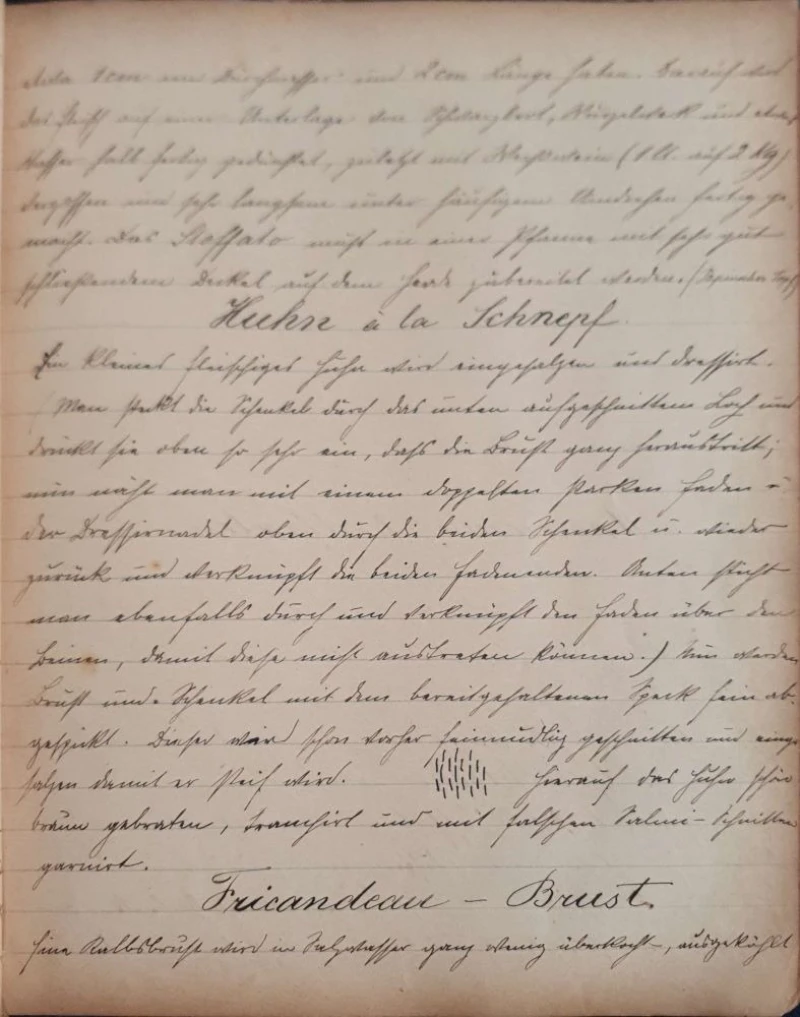 1 cm im Durchmesser und 2 cm Länge haben. Darauf wird
das Fleisch auf einer Unterlage von Schwarzbrot, Wurzelwerk und etwas
Wasser halb fertig gedünstet, zuletzt mit (1 lt. auf 2 Klg)
vergossen und sehr langsam unter häufigem Umdrehen fertig ge-
macht. Das Stoffato muß in einer Pfanne mit sehr gut
schließendem Deckel auf dem Herde zubereitet werden.
Huhn à la Schnepf.
Ein kleines fleischiges Huhn wird eingesalzen und dressirt.
(Man steckt die Schenkel durch das unten aufgeschnittene Loch und
drückt sie oben so sehr ein, daß die Brust ganz heraustritt;
nun näht man mit einem doppelten starken Faden u
der Dressirnadel oben durch die beiden Schenkel u. wieder
zurück und verknüpft die beiden Fadenenden. Unten sticht
man ebenfalls durch und verknüpft den Faden über den
Beinen, damit diese nicht austreten können.) Nun werden
Brust und Schenkel mit dem bereitgehaltenen Speck fein ab-
gespickt. Dieser wird schon vorher feinnudlig geschnitten und einge-
salzen damit er steif wird. Hierauf das Huhn schön
braun gebraten, tranchirt und mit falschen Salmi-Schnitten
garnirt.
Fricandeau - Brust.
Eine Kalbsbrust wird in Salzwasser ganz wenig überkocht, ausgekühlt